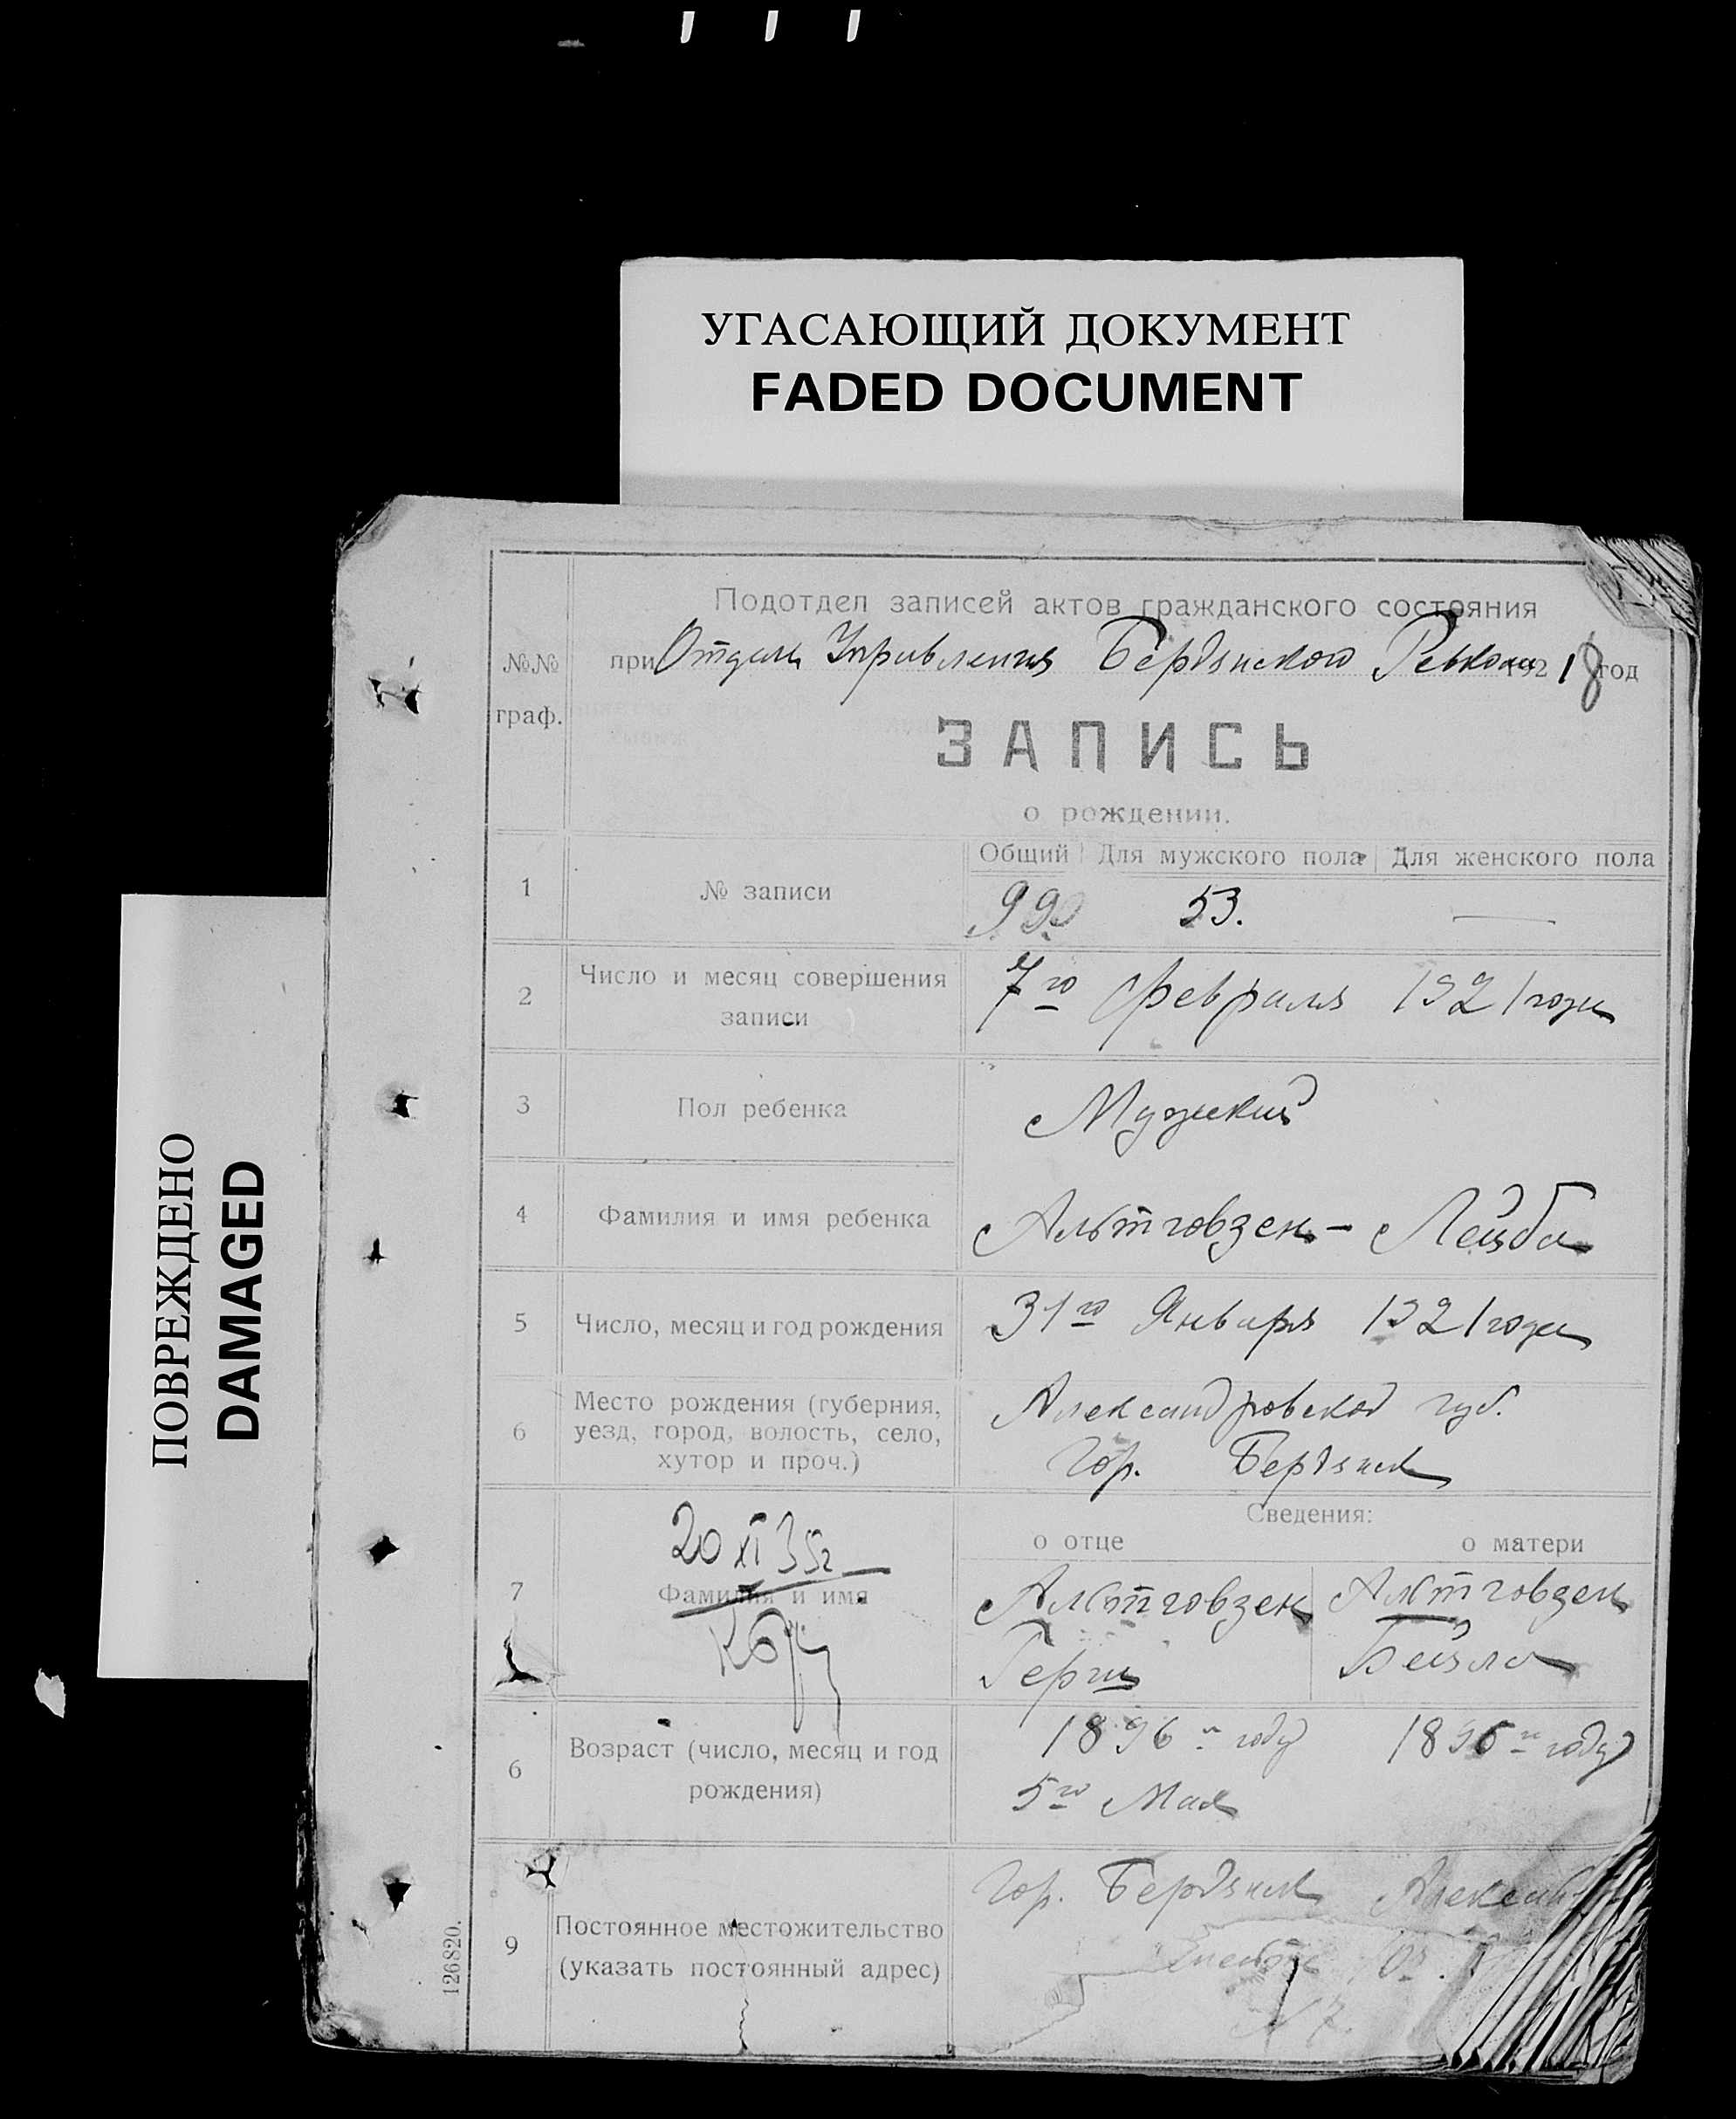 УГАСАЮЩИЙ ДОКУМЕНТ
FADED DOCUMENT
ПОВРЕЖДЕНО
DAMAGED
Подотдел записей актов гражданского состояния
№№ граф.
при Отделе Управления Бердянского Ревкома 1921 год
ЗАПИСЬ
о рождении.
Общий Для мужского пола Для женского пола
1 № записи 99 53. —
2 Число и месяц совершения записи 7го Февраля 1921 года
3 Пол ребенка Мужский
4 Фамилия и имя ребенка Альтговзен - Лейба
5 Число, месяц и год рождения 31го Января 1921 года
6 Место рождения (губерния, уезд, город, волость, село, хутор и проч.) Александровской губ.
Гор. Бердянск
Сведения:
о отце о матери
20 XI 35г
7 Фамилия и имя Альтговзен Герш Альтговзен Бейла
6 Возраст (число, месяц и год рождения) 1896м году 1896м году
5го Мая
9 Постоянное местожительство (указать постоянный адрес) Гор. Бердянск
№ 7.
126820.